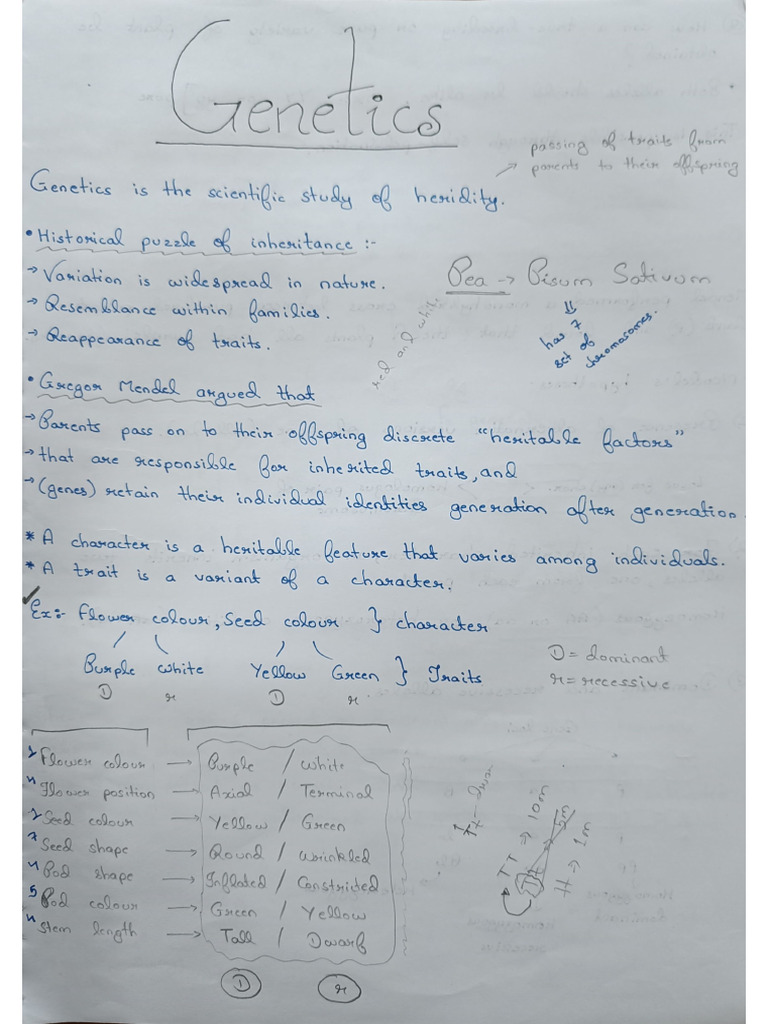 Genetics
passing of traits from
→ parents to their offspring
Genetics is the scientific study of heridity.
• Historical puzzle of inheritance :-
→ Variation is widespread in nature.
→ Resemblance within families.
→ Reappearance of traits.
Pea → Pisum Sativum
⇓
has 7
set of
chromosomes.
red and white
• Gregor Mendel argued that
→ Parents pass on to their offspring discrete "heritable factors"
→ that are responsible for inherited traits, and
→ (genes) retain their individual identities generation after generation.
* A character is a heritable feature that varies among individuals.
* A trait is a variant of a character.
Ex:- Flower colour, Seed colour } character
Purple white Yellow Green } Traits
D r D r
D = dominant
r = recessive
Flower colour → Purple / White
4 Flower position → Axial / Terminal
1 Seed colour → Yellow / Green
7 Seed shape → Round / Wrinkled
4 Pod shape → Inflated / Constrided
5 Pod colour → Green / Yellow
4 Stem length → Tall / Dwarf
D r
TT → 10m
Tt → 5m
tt → 1m